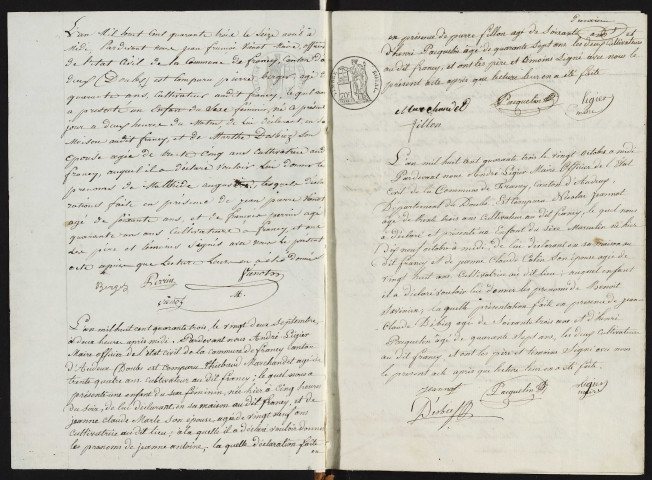 L'an mil huit cent quarante trois le Seize avril à
Midi. Pardevant nous jean françois Vuinot Maire officier
de l'état Civil de la Commune de franey, Canton d'Au
deux (Doubs) est comparu pierre berger agé de
quarante ans, cultivateur audit franey, lequel nous
a presenté un Enfant du Sexe féminin, né ce présent
jour a deux heures du Matin de lui déclarant, en sa
Maison audit franey et de Marthe
Epouse agée de trente Cinq ans Cultivatrice audit
franey, auquel il a déclaré vouloir lui donner les
prenoms de Mathilde lesquelles décla
rations faite en presence de jean pierre Vuinot
agé de soixante ans, et de françois perrin agé
quarante ans Cultivateurs à franey, et ont
les père et témoins Signés avec nous le présent
acte apres que Lecture Leur en a été donné
Berger Perrin Vuinot
Vuinot M.
L'an mil huit cent quarante trois, le vingt deux Septembre,
à deux heures après midi. Pardevant nous André Ligier
Maire officier de l'état civil de la commune de franey canton
d'Audeux (Doubs) est comparu Thiébaud Marchandet agé de
trente quatre ans cultivateur au dit franey; le quel nous a
présenté une enfant du sexe féminin, née hier à cinq heures
du soir, de lui déclarant en sa maison au dit franey, et de
jeanne claude Marle son épouse, agée de vingt neuf ans
cultivatrice au dit lieu; à la quelle il a déclaré vouloir donner
les prenoms de jeanne antoine; la quelle déclaration faite
en présence de pierre fillon agé de soixante ans et
d'henri Pacquelin agé de quarante Sept ans, les deux Cultivateurs
au dit franey, et ont les père et témoins Signé avec nous le
présent acte après que lecture leur en a été faite.
Marchandet Pacquelin Ligier
fillon maire
L'an mil huit cent quarante trois le vingt octobre a midi
Pardevant nous André Ligier Maire Officier de l'Etat
Civil de la Commune de Franey, Canton d'Audeux,
Département du Doubs, est comparu Nicolas jeannot
agé de trente trois ans, Cultivateur au dit franey, le quel nous
a déclaré et présenté un Enfant du Sexe Masculin né hier
Dix neuf octobre à midi, de lui déclarant en sa maison au
dit franey et de jeanne Claude son épouse agée de
vingt huit ans Cultivatrice au dit lieu; auquel enfant
il a déclaré vouloir lui donner les prenoms de Benoit
la quelle présentation faite en presence de jean
Claude agé de Soixante trois ans et d'henri
Pacquelin agé de quarante Sept ans, les deux Cultivateurs
au dit franey et ont les père et témoins Signé avec nous
le présent acte après que lecture leur en a été faite.
Jeannot Pacquelin Ligier
maire